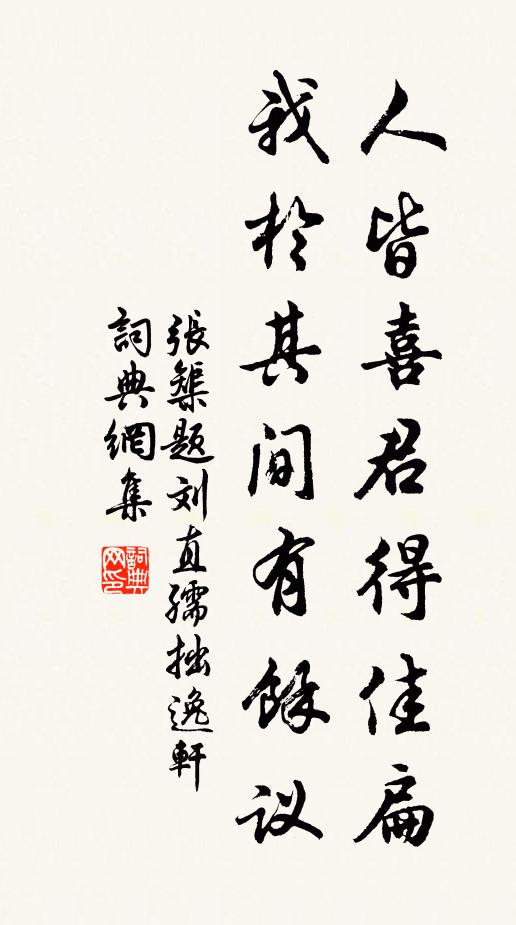 人皆喜君得佳扁
我於其間有餘议
張榘题刘直孺拙逸軒
詞典網集
詞典网印